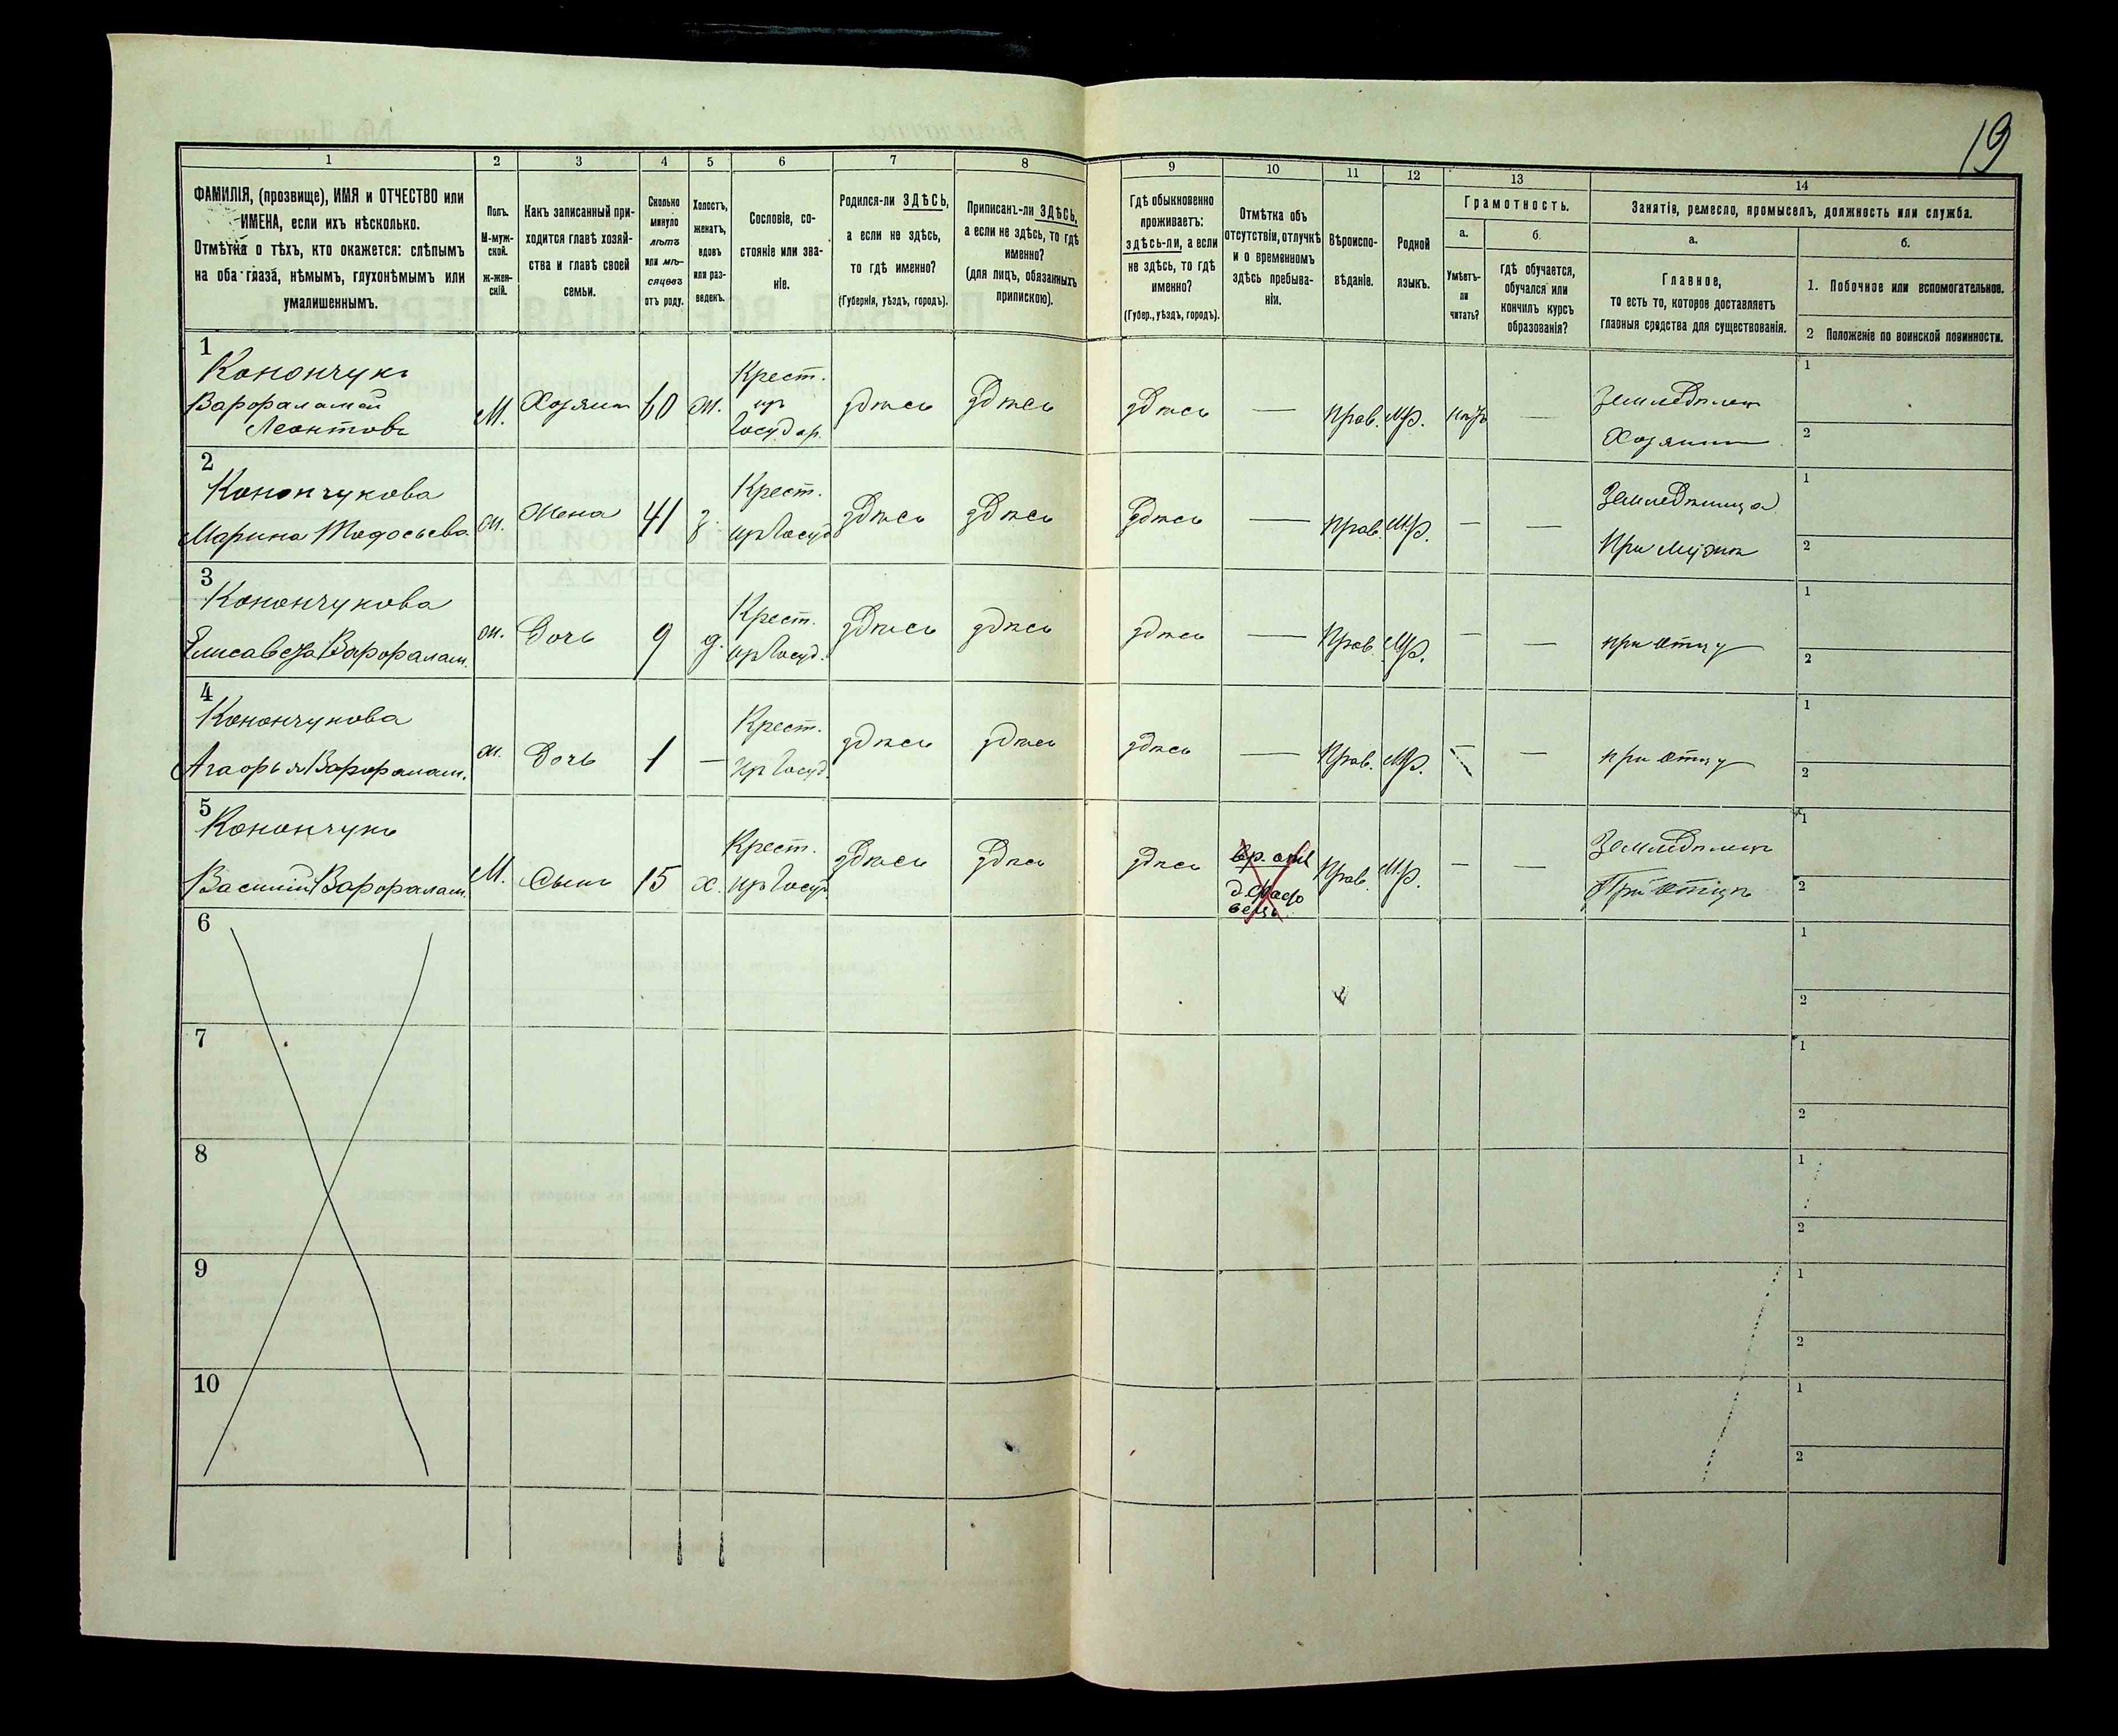 19
1 2 3 4 5 6 7 8 9 10 11 12 13 14
ФАМИЛІЯ, (прозвище), ИМЯ и ОТЧЕСТВО или
ИМЕНА, если ихъ нѣсколько.
Отмѣтка о тѣхъ, кто окажется: слѣпымъ
на оба глаза, нѣмымъ, глухонѣмымъ или
умалишеннымъ.
Полъ.
М-муж-
ской.
ж-жен-
скій.
Какъ записанный при-
ходится главѣ хозяй-
ства и главѣ своей
семьи.
Сколько
минуло
лѣтъ
или мѣ-
сяцевъ
отъ роду.
Холостъ,
женатъ,
вдовъ
или раз-
веденъ.
Сословіе, со-
стояніе или зва-
ніе.
Родился-ли ЗДѢСЬ,
а если не здѣсь,
то гдѣ именно?
(Губернія, уѣздъ, городъ).
Приписанъ-ли ЗДѢСЬ,
а если не здѣсь, то гдѣ
именно?
(для лицъ, обязанныхъ
припискою).
Гдѣ обыкновенно
проживаетъ:
здѣсь-ли, а если
не здѣсь, то гдѣ
именно?
(Губер., уѣздъ, городъ).
Отмѣтка объ
отсутствіи, отлучкѣ
и о временномъ
здѣсь пребыва-
ніи.
Вѣроиспо-
вѣданіе.
Родной
языкъ.
Грамотность.
а.
Умѣетъ-
ли
читать?
б.
гдѣ обучается,
обучался или
кончилъ курсъ
образованія?
Занятія, ремесло, промыселъ, должность или служба.
а.
Главное,
то есть то, которое доставляетъ
главныя средства для существованія.
б.
1. Побочное или вспомогательное.
2 Положеніе по воинской повинности.
1
Конончукъ
Варфаламей
Леонтовъ
М. Хозяинъ 60 ж.
Крест.
изъ
Государ.
здѣсь здѣсь здѣсь — Прав. Мр. нѣтъ —
Земледѣлец
Хозяинъ
1
2
2
Конончукова
Марина Тодосьева
ж. Жена 41 з.
Крест.
изъ Госуд
здѣсь здѣсь здѣсь — Прав. Мр. — —
Земледѣлица
При мужѣ
1
2
3
Конончукова
Елисавета Варфалам.
ж. Дочь 9 д.
Крест.
изъ Госуд.
здѣсь здѣсь здѣсь — Прав. Мр. — —
при отцу
1
2
4
Конончукова
Агафья Варфалам.
ж. Дочь 1 —
Крест.
изъ Госуд.
здѣсь здѣсь здѣсь — Прав. Мр. — —
при отцу
1
2
5
Конончукъ
Василій Варфалам.
М. Сынъ 15 х.
Крест.
изъ Госуд.
здѣсь здѣсь здѣсь
Прав. Мр. — —
Земледѣлецъ
При отцѣ
1
2
6
1
2
7
1
2
8
1
2
9
1
2
10
1
2